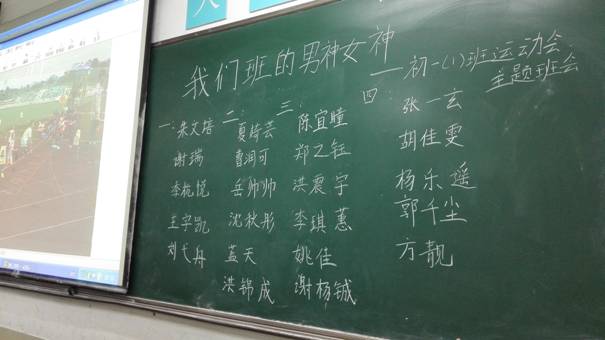 我们班的男神女神
——初一(1)班运动会
主题班会
一:朱文培 二:夏绮芸 三:陈宜瞳 四:张一玄
谢瑞 曹润可 郑乙钰 胡佳雯
李杭悦 岳帅帅 洪震宇 杨乐遥
王宇凯 沈秋彤 李琪蕙 郭千尘
刘弋舟 蓝天 姚佳 方靓
洪锦成 谢杨铖